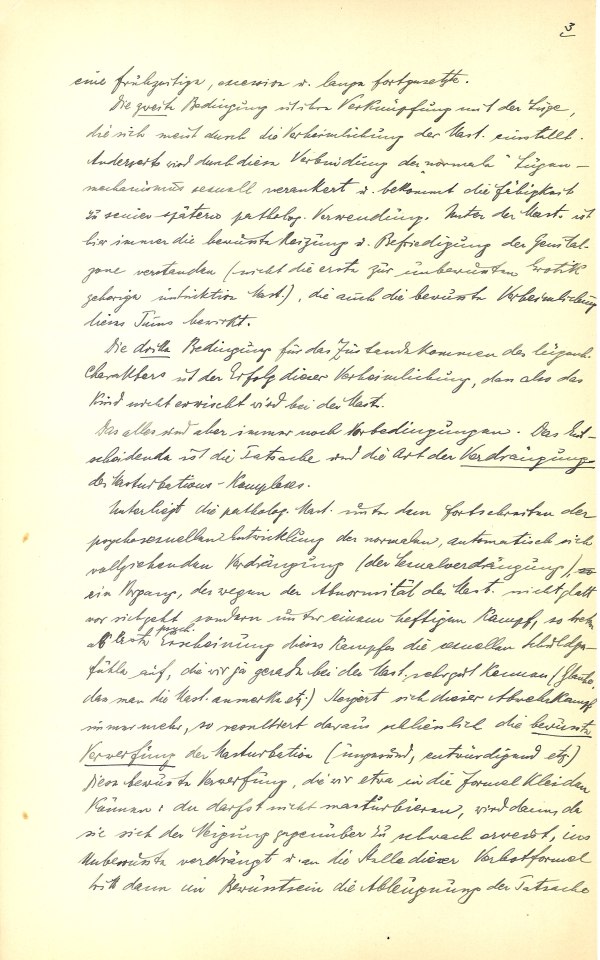 3
eine frühzeitige, excessive u. lange fortgesetzte.
Die zweite Bedingung ist ihre Verknüpfung mit der Lüge,
die sich meist durch die Verheimlichung der Mast. einstellt.
Anderseits wird durch diese Verbindung der "normale" Lügen-
mechanismus sexuell verankert u. bekommt die Fähigkeit
zu seiner spätern patholog. Verwendung. Unter der Mast. ist
hier immer die bewusste Reizung u. Befriedigung der Genital-
zone verstanden (nicht die erste zur unbewussten Erotik
gehörige Mast.), die auch die bewusste Verheimlichung
dieses Tuns bewirkt.
Die dritte Bedingung für das Zustandekommen des lügenh.
Charakters ist der Erfolg dieser Verheimlichung, dass also das
Kind nicht erwischt wird bei der Mast.
Das alles sind aber immer noch Vorbedingungen. Das Ent-
scheidende ist die Tatsache und die Art der Verdrängung
des Masturbations-Komplexes.
Unterliegt die patholog. Mast. unter dem Fortschreiten der
psychosexuellen Entwicklung der normalen, automatisch sich
vollziehenden Verdrängung (der Sexualverdrängung),
ein Vorgang, der wegen der Abnormität der Mast. nicht glatt
vor sich geht sondern unter einem heftigen Kampf, so treten
als erste psych. Erscheinung dieses Kampfes die sexuellen Schuldge-
fühle auf, die wir ja gerade bei der Mast. sehr gut kennen (Glaube,
dass man die Mast. anmerke etz.) Steigert sich dieser Abwehrkampf
immer mehr, so resultiert daraus schliesslich die bewusste
Verwerfung der Masturbation (ungesund, entwürdigend etz.)
Diese bewusste Verwerfung, die wir etwa in die Formel kleiden
können: du darfst nicht masturbieren, wird dann, da
sie sich der Neigung gegenüber zu schwach erweist, ins
Unbewusste verdrängt u. an die Stelle dieser Verbotformel
tritt dann im Bewusstsein die Ableugnung der Tatsache